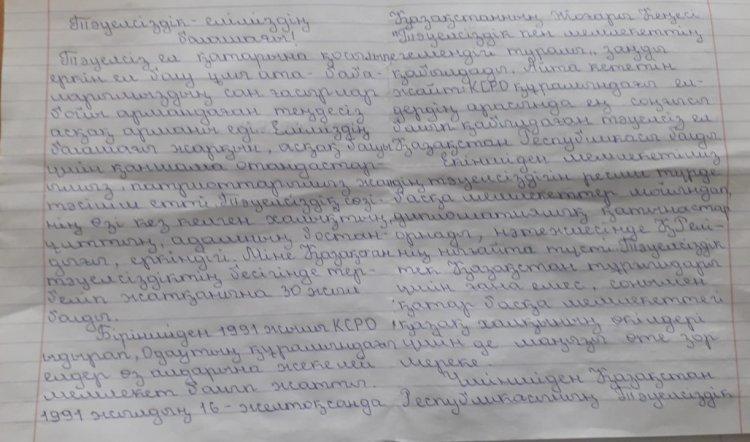 Тәуелсіздік - еліміздің
болашағы!
Тәуелсіз ел қатарына қосылып
еркін ел болу ұлы ата - баба-
ларымыздың сан ғасырлар
бойы армандаған теңдесіз
асқақ арманы еді. Еліміздің
болашағы жарқын, асқақ болуы
үшін қаншама отандастар-
ымыз, патриоттарымыз жан
тәсілім етті. Тәуелсіздік сөзі-
нің өзі кез келген халықтың,
ұлттың, адамның бостан-
дығы, еркіндігі. Міне Қазақстан
тәуелсіздіктің бесігінде тер-
беліп жатқанына 30 жыл
болды.
Біріншіден 1991 жылы КСРО
ыдырап, Одақтың құрамындағы
елдер өз алдарына жекелей
мемлекет болып жатты.
1991 жылдың 16 - желтоқсанда
Қазақстанның Жоғары Кеңесі
"Тәуелсіздік пен мемлекеттің
егемендігі туралы" заңды
қабылдады. Айта кететін
жайт КСРО құрамындағы ел-
дердің арасында ең соңғысы
болып қабылдаған тәуелсіз ел
Қазақстан Республикасы болды
Екіншіден мемлекетіміз
дің тәуелсіздігін ресми түрде
басқа мемлекеттер мойындап,
дипломатиялық қатынастар
орнады, нәтежесінде Қ.Рес-
нің нығайта түсті. Тәуелсіздік
тек Қазақстан тұрғындары
үшін ғана емес, сонымен
қатар басқа мемлекеттегі
қазақ халқының өкілдері
үшін де маңызы өте зор
мереке.
Үшіншіден Қазақстан
Республикасының Тәуелсіздік